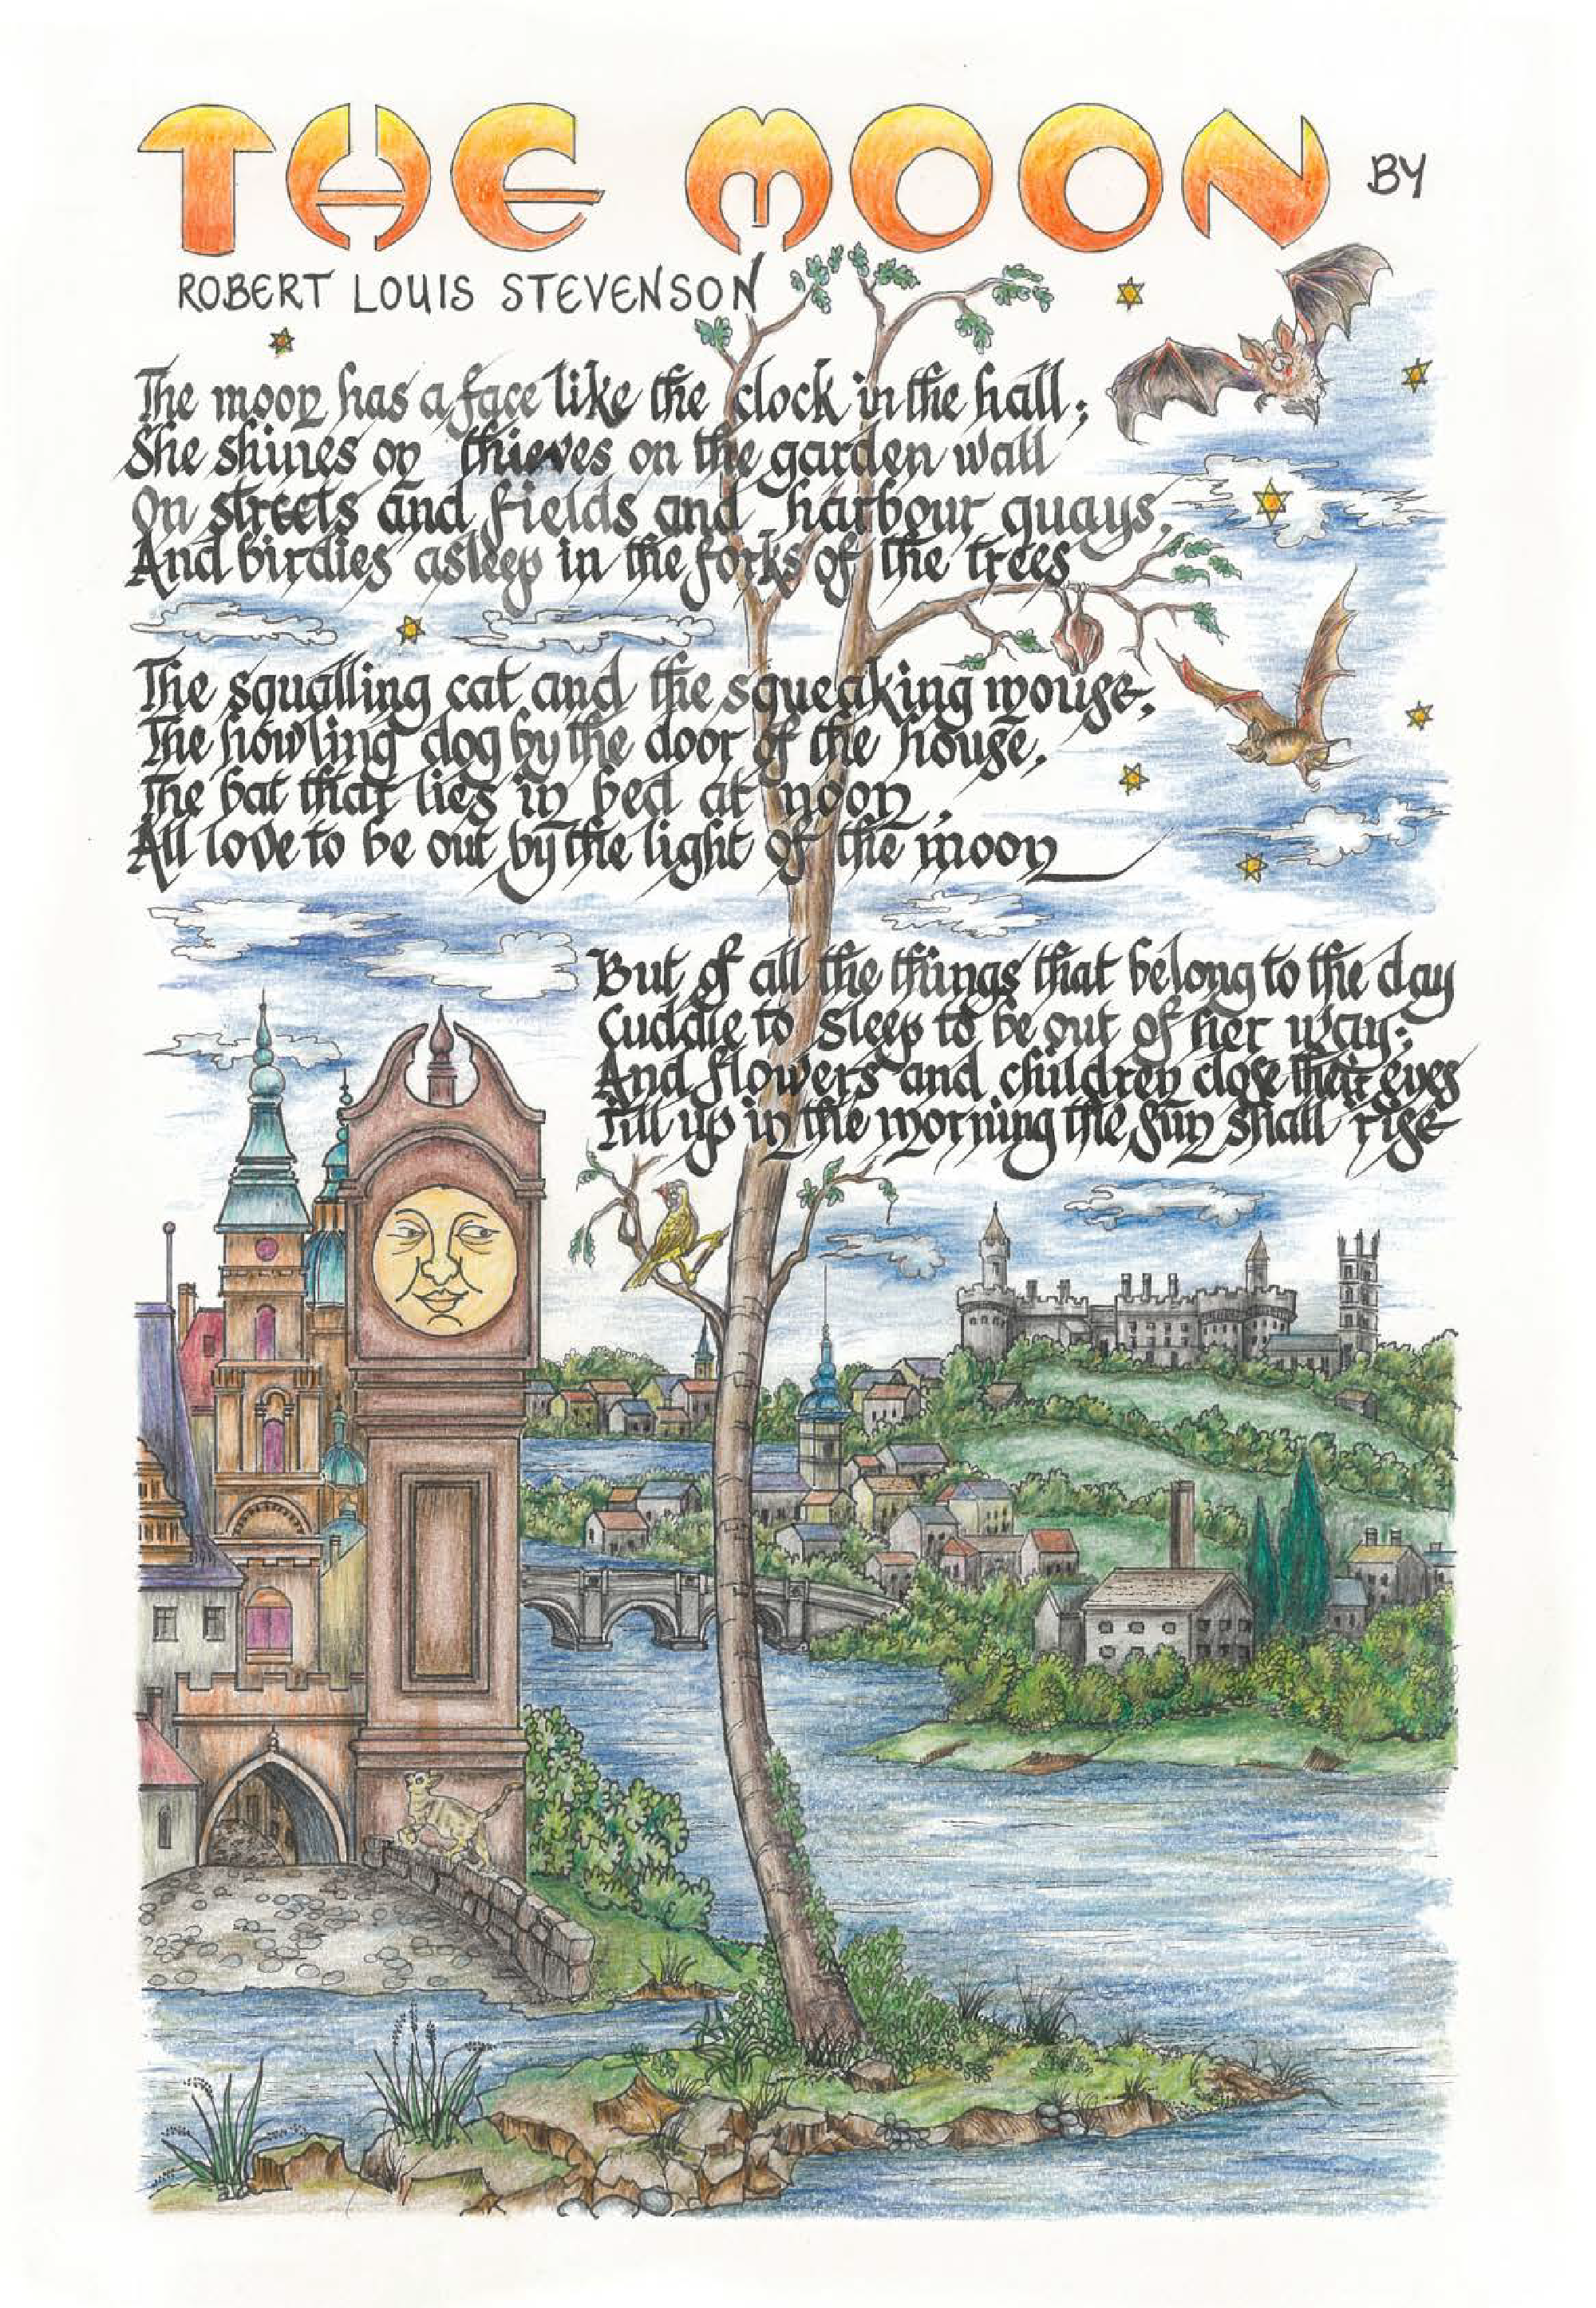 THE MOON BY
ROBERT LOUIS STEVENSON
The moon has a face like the clock in the hall;
She shines on thieves on the garden wall
On streets and fields and harbour quays,
And birdies asleep in the forks of the trees
The squalling cat and the squeaking mouse,
The howling dog by the door of the house,
The bat that lies in bed at noon,
All love to be out by the light of the moon
But of all the things that belong to the day
Cuddle to sleep to be out of her way;
And flowers and children close their eyes
Till up in the morning the sun shall rise